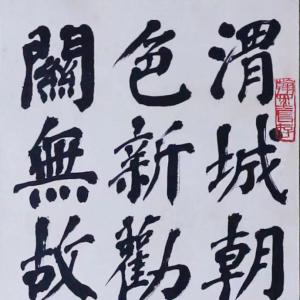 渭城朝
色新勸
關無故